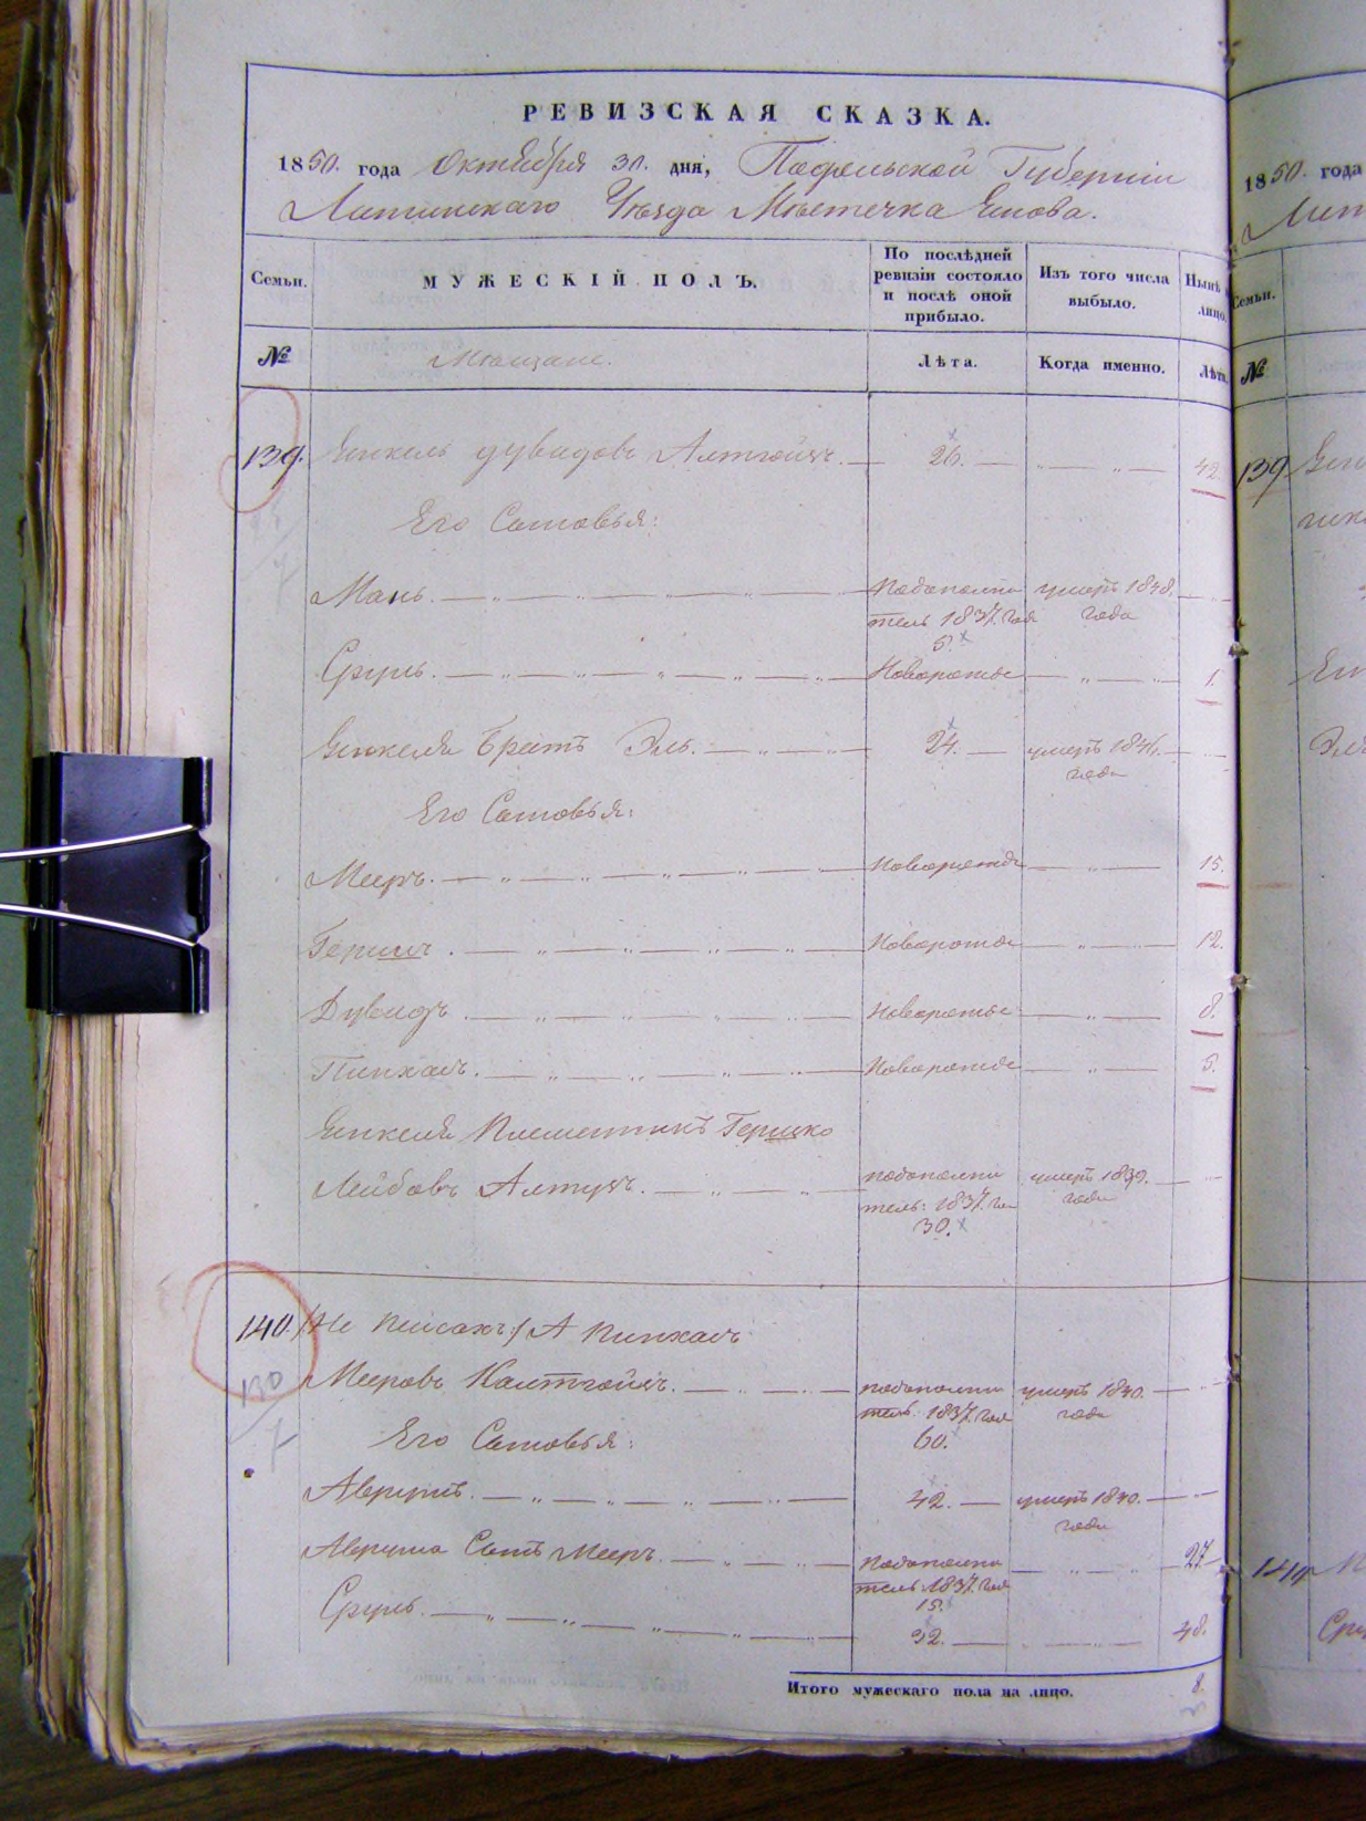 РЕВИЗСКАЯ СКАЗКА.
1850. года Октября 31. дня, Подольской Губернiи
Литинскаго Уѣзда Мѣстечка Янова.
Семьи.
МУЖЕСКIЙ ПОЛЪ.
По послѣдней ревизiи состояло и послѣ оной прибыло.
Изъ того числа выбыло.
Нынѣ
лицо.
№
Мѣщане.
Лѣта.
Когда именно.
Лѣта.
139. Янкель Дувидовъ 26. 42.
Его Сыновья:
Мань. Пополни тель 1837. года 5. умеръ 1848. года
Сруль. Новорожде 1.
Янкеля Братъ Эль. 24. умеръ 1841. года
Его Сыновья:
Мееръ. Новорожде 15.
Гершъ. Новорожде 12.
Дувидъ. Новорожде 8.
Пинхасъ. Новорожде 5.
Янкеля Племянникъ Гершко
Лейбовъ умеръ 1839. года
тель: 1837. го 30.
140. /Не Пейсахъ/ А Пинхасъ
Мееровъ умеръ 1840. года
тель 1837. года 60.
Его Сыновья:
Аврумъ. 42. умеръ 1840. года
Аврума Сынъ Мееръ. тель 1837. года 15. 27
Сруль. 32. 48.
130
Итого мужескаго пола на лицо. 8.
1850. года
Лит
Семьи.
№
139
140